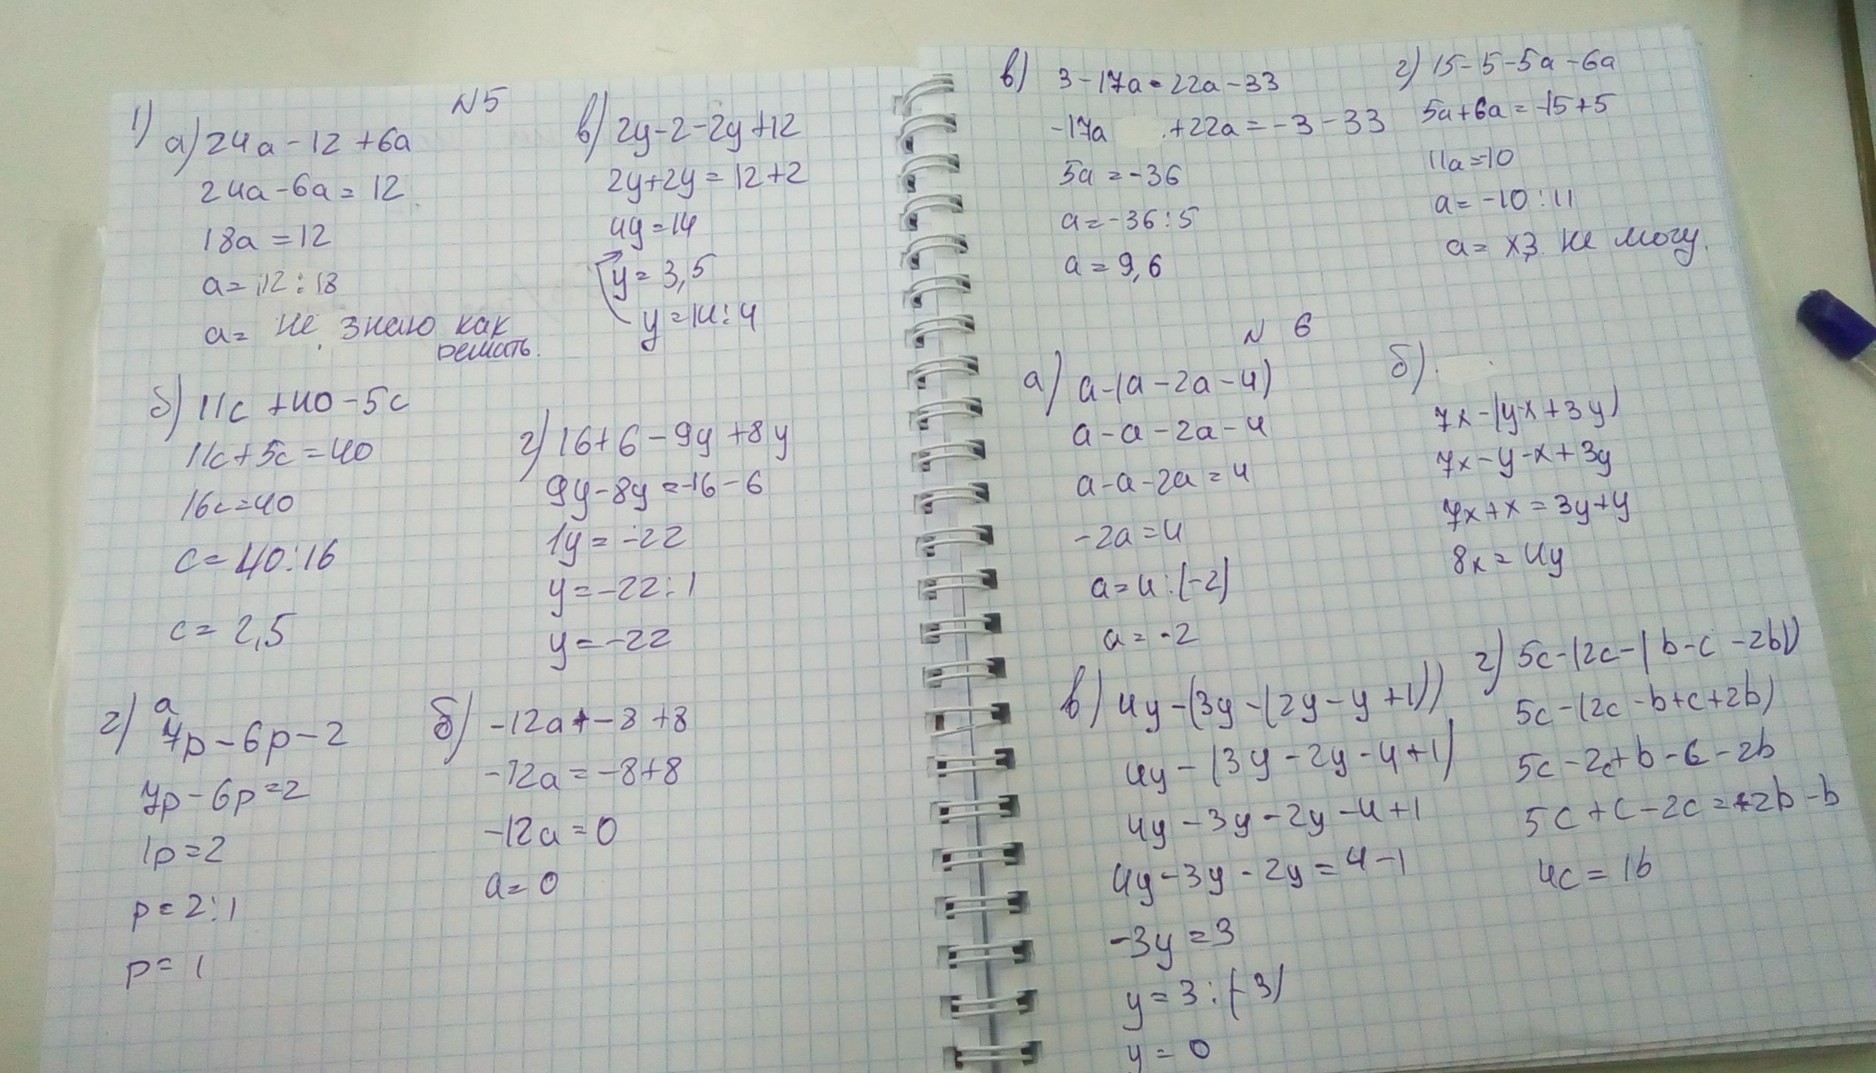 №5
1) а) 24a - 12 + 6a
24a - 6a = 12
18a = 12
a = 12 : 18
a = не знаю как
решать.
в) 2y - 2 - 2y + 12
2y + 2y = 12 + 2
4y = 14
y = 3,5
y = 14 : 4
б) 11c + 40 - 5c
11c + 5c = 40
16c = 40
c = 40 : 16
c = 2,5
г) 16 + 6 - 9y + 8y
9y - 8y = -16 - 6
1y = -22
y = -22 : 1
y = -22
г) а
7p - 6p - 2
7p - 6p = 2
1p = 2
p = 2 : 1
p = 1
б) -12a + -8 + 8
-12a = -8 + 8
-12a = 0
a = 0
в) 3 - 17a - 22a - 33
-17a + 22a = -3 - 33
5a = -36
a = -36 : 5
a = 9,6
г) 15 - 5 - 5a - 6a
5a + 6a = -15 + 5
11a = 10
a = -10 : 11
a = хз. не могу.
№ 6
а) a - (a - 2a - 4)
a - a - 2a - 4
a - a - 2a = 4
-2a = 4
a = 4 : (-2)
a = -2
б)
7x - (y - x + 3y)
7x - y - x + 3y
7x + x = 3y + y
8x = 4y
в) 4y - (3y - (2y - y + 1))
4y - (3y - 2y - 4 + 1)
4y - 3y - 2y - 4 + 1
4y - 3y - 2y = 4 - 1
-3y = 3
y = 3 : (-3)
y = 0
г) 5c - (2c - (b - c - 2b))
5c - (2c - b + c + 2b)
5c - 2c + b - c - 2b
5c + c - 2c = 2b - b
4c = 1b